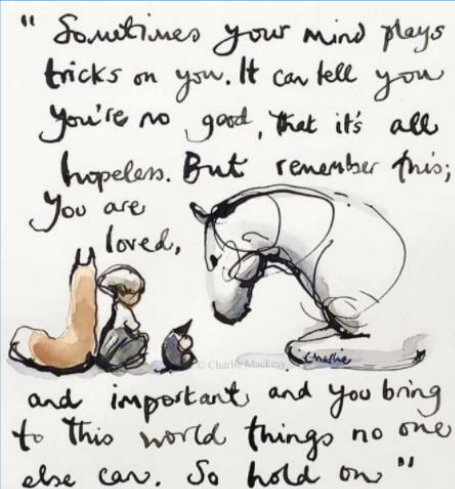 " Sometimes your mind plays
tricks on you. It can tell you
you're no good, that it's all
hopeless. But remember this;
You are
loved,
© Charlie Mackesy
Charlie
and important and you bring
to this world things no one
else can. So hold on "